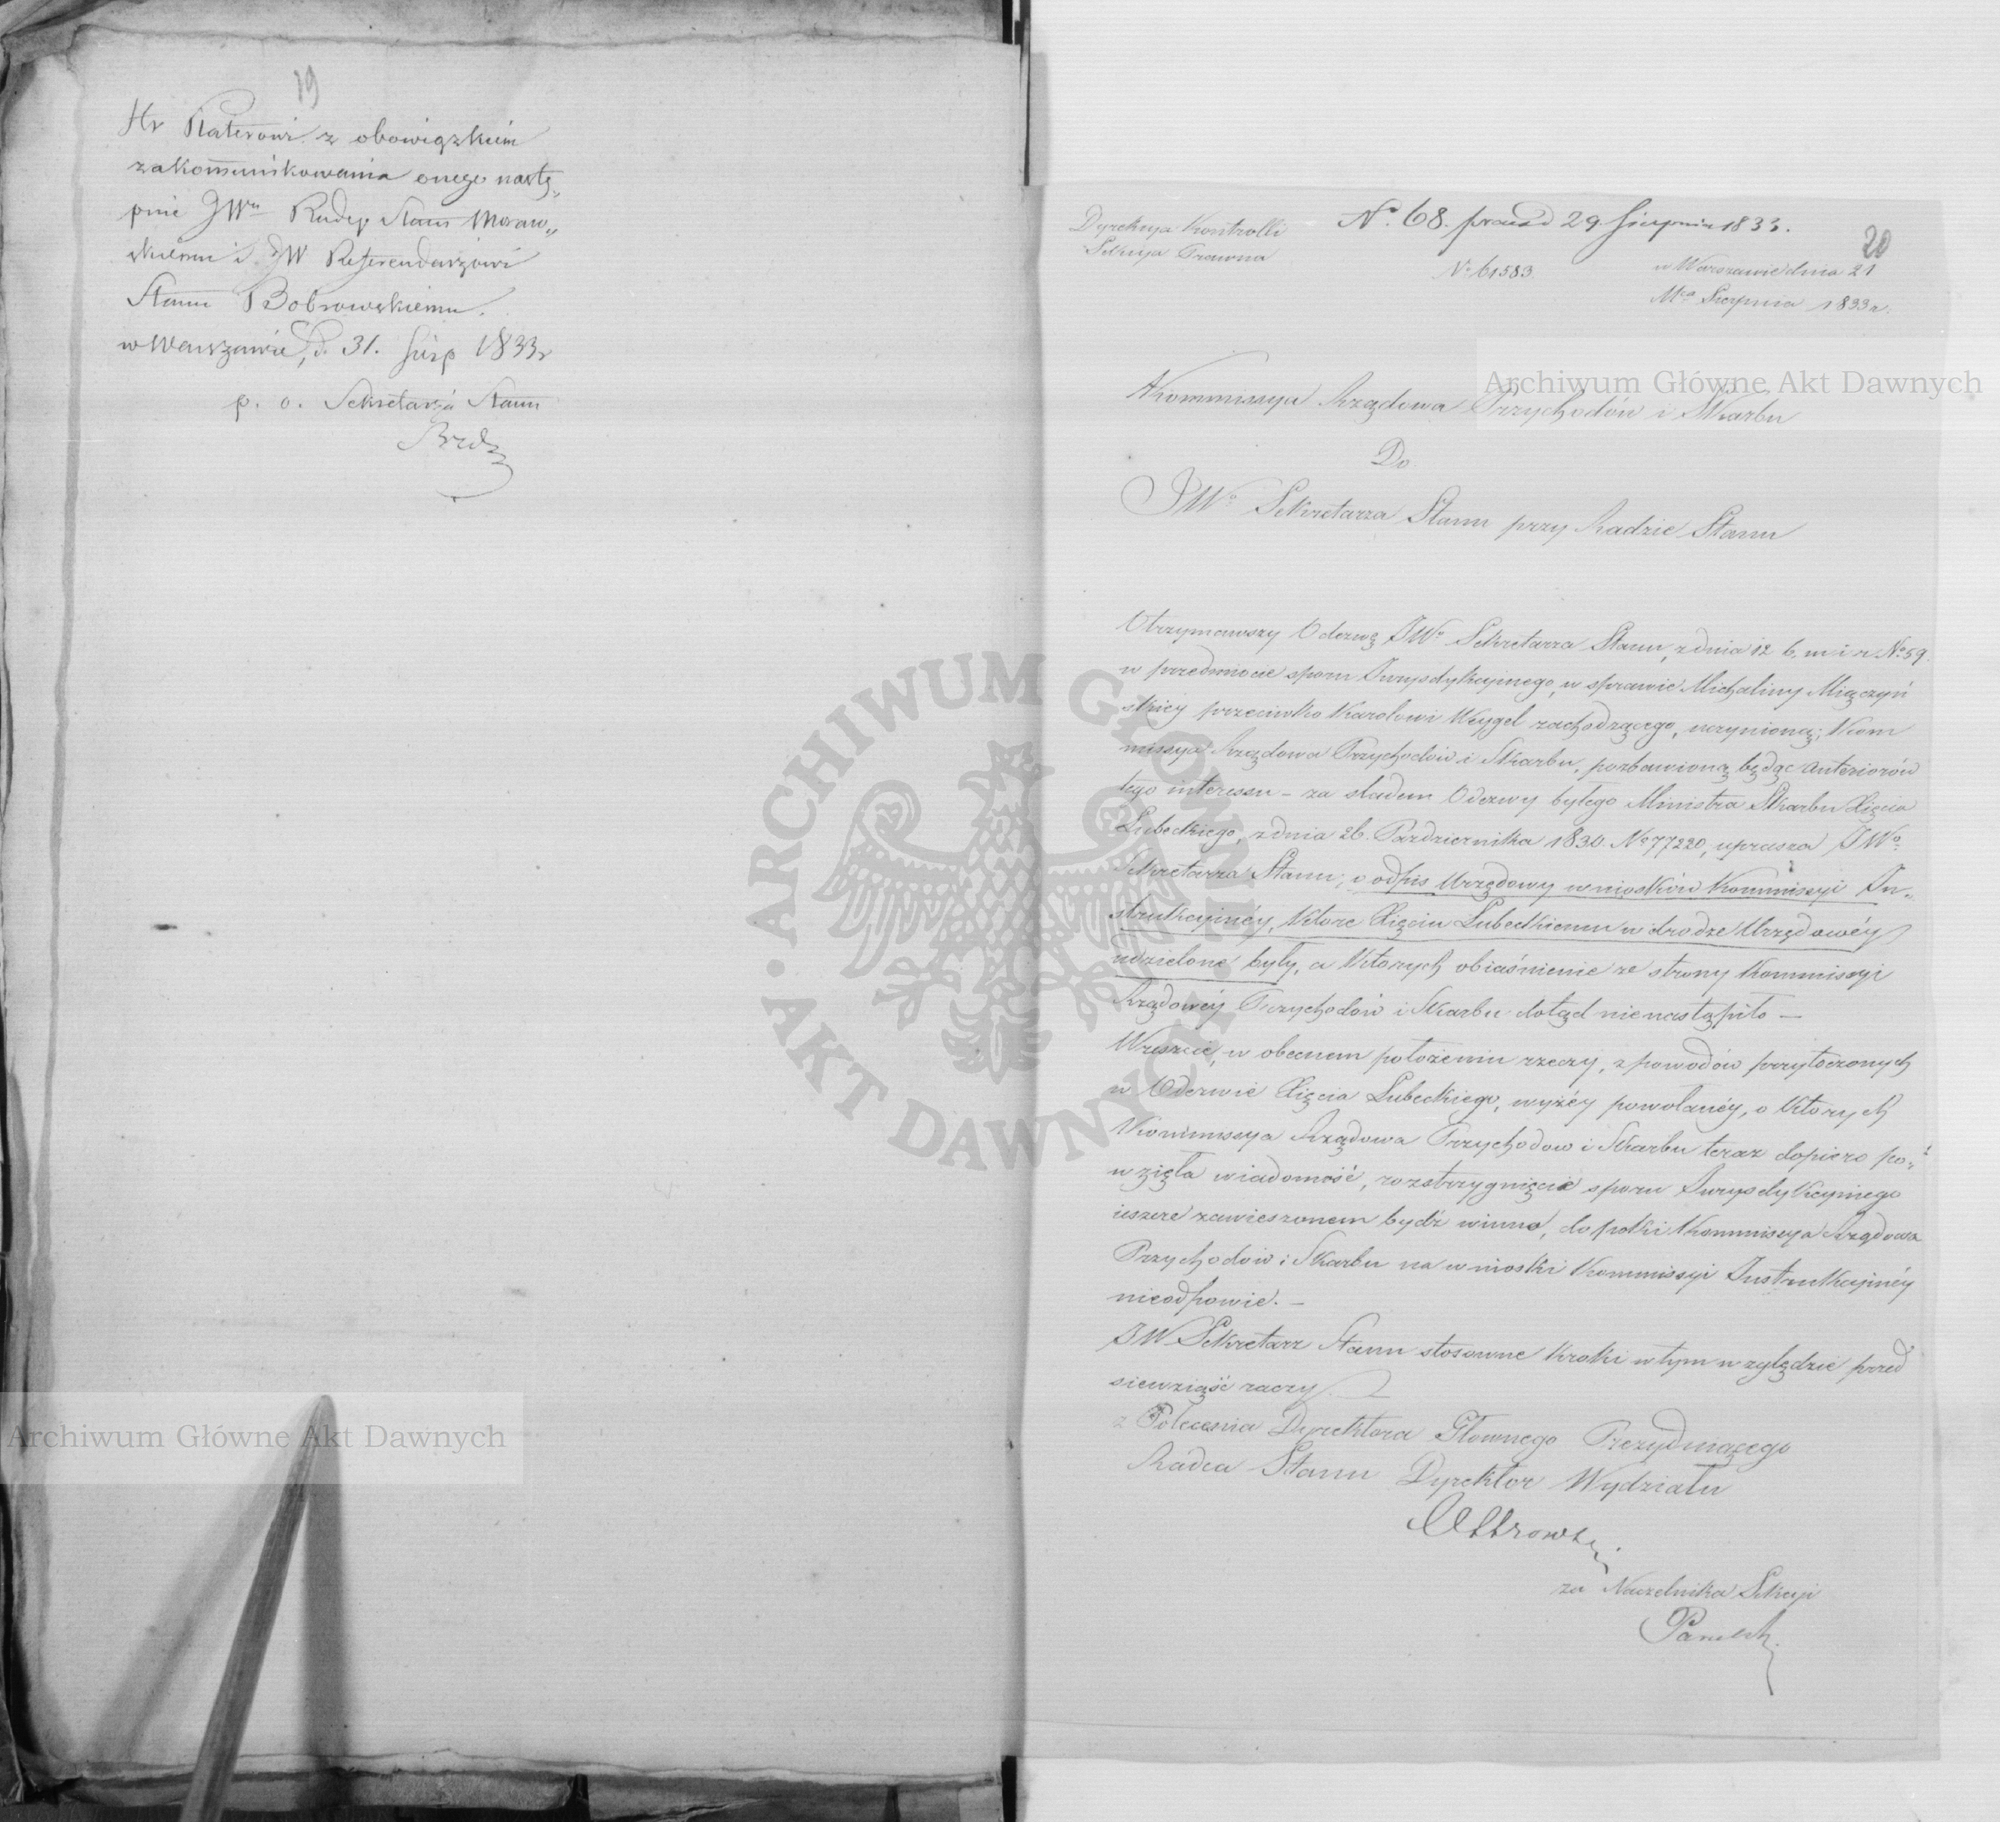 19
Hr Platerowi z obowiązkiem
zakommunikowania onego nastę„
pnie JWu Radcy Stanu Moraw„
skiemu i JW Referendarzowi
Stanu Bobrowskiemu.
w Warszawie, d. 31. Sierp 1833 r
p. o. Sekretarza Stanu
Dyrekcya Kontrolli
Sekcya Prawna
No. 68. praes d 29. Sierpnia 1833.
20
No 61583
w Warszawie dnia 21
Mca Sierpnia 1833 r.
Kommissya Rządowa Przychodów i Skarbu
Do
JWo Sekretarza Stanu przy Radzie Stanu
Otrzymawszy Odezwę JWo Sekretarza Stanu, z dnia 12 b. m i r No 59.
w przedmiocie sporu Jurysdykcyinego, w sprawie Michaliny Miączyń
skiey przeciwko Karolowi Weygel zachodzącego, uczynioną; Kom
missya Rządowa Przychodów i Skarbu, pozbawioną będąc anteriorów
tego interessu – za śladem Odezwy byłego Ministra Skarbu Xięcia
Lubeckiego, z dnia 26. Października 1830. No 77220, uprasza JWo
Sekretarza Stanu, o odpis Urzędowy wniosków Kommissyi In„
strukcyinéy, które Xięciu Lubeckiemu w drodze Urzędowéy
udzielone były, a których obiaśnienie ze strony Kommissyi
Rządowéy Przychodów i Skarbu dotąd nie nastąpiło —
Wreszcie, w obecnem położeniu rzeczy, z powodów przytoczonych
w Odezwie Xięcia Lubeckiego, wyżéy powołanéy, o których
Kommissya Rządowa Przychodow i Skarbu teraz dopiero po„
wzięła wiadomość, rozstrzygnięcie sporu Jurysdykcyinego
ieszcze zawieszonem bydź winno, dopóki Kommissya Rządowa
Przychodów i Skarbu na wnioski Kommissyi Instrukcyinéy
nieodpowie. —
JW Sekretarz Stanu stosowne kroki w tym względzie przed
siewziąść raczy.
z Polecenia Dyrektora Głownego Prezyduiącego
Radca Stanu Dyrektor Wydziału
za Naczelnika Sekcyi
Archiwum Główne Akt Dawnych
Archiwum Główne Akt Dawnych
ARCHIWUM GŁÓWNE AKT DAWNYCH